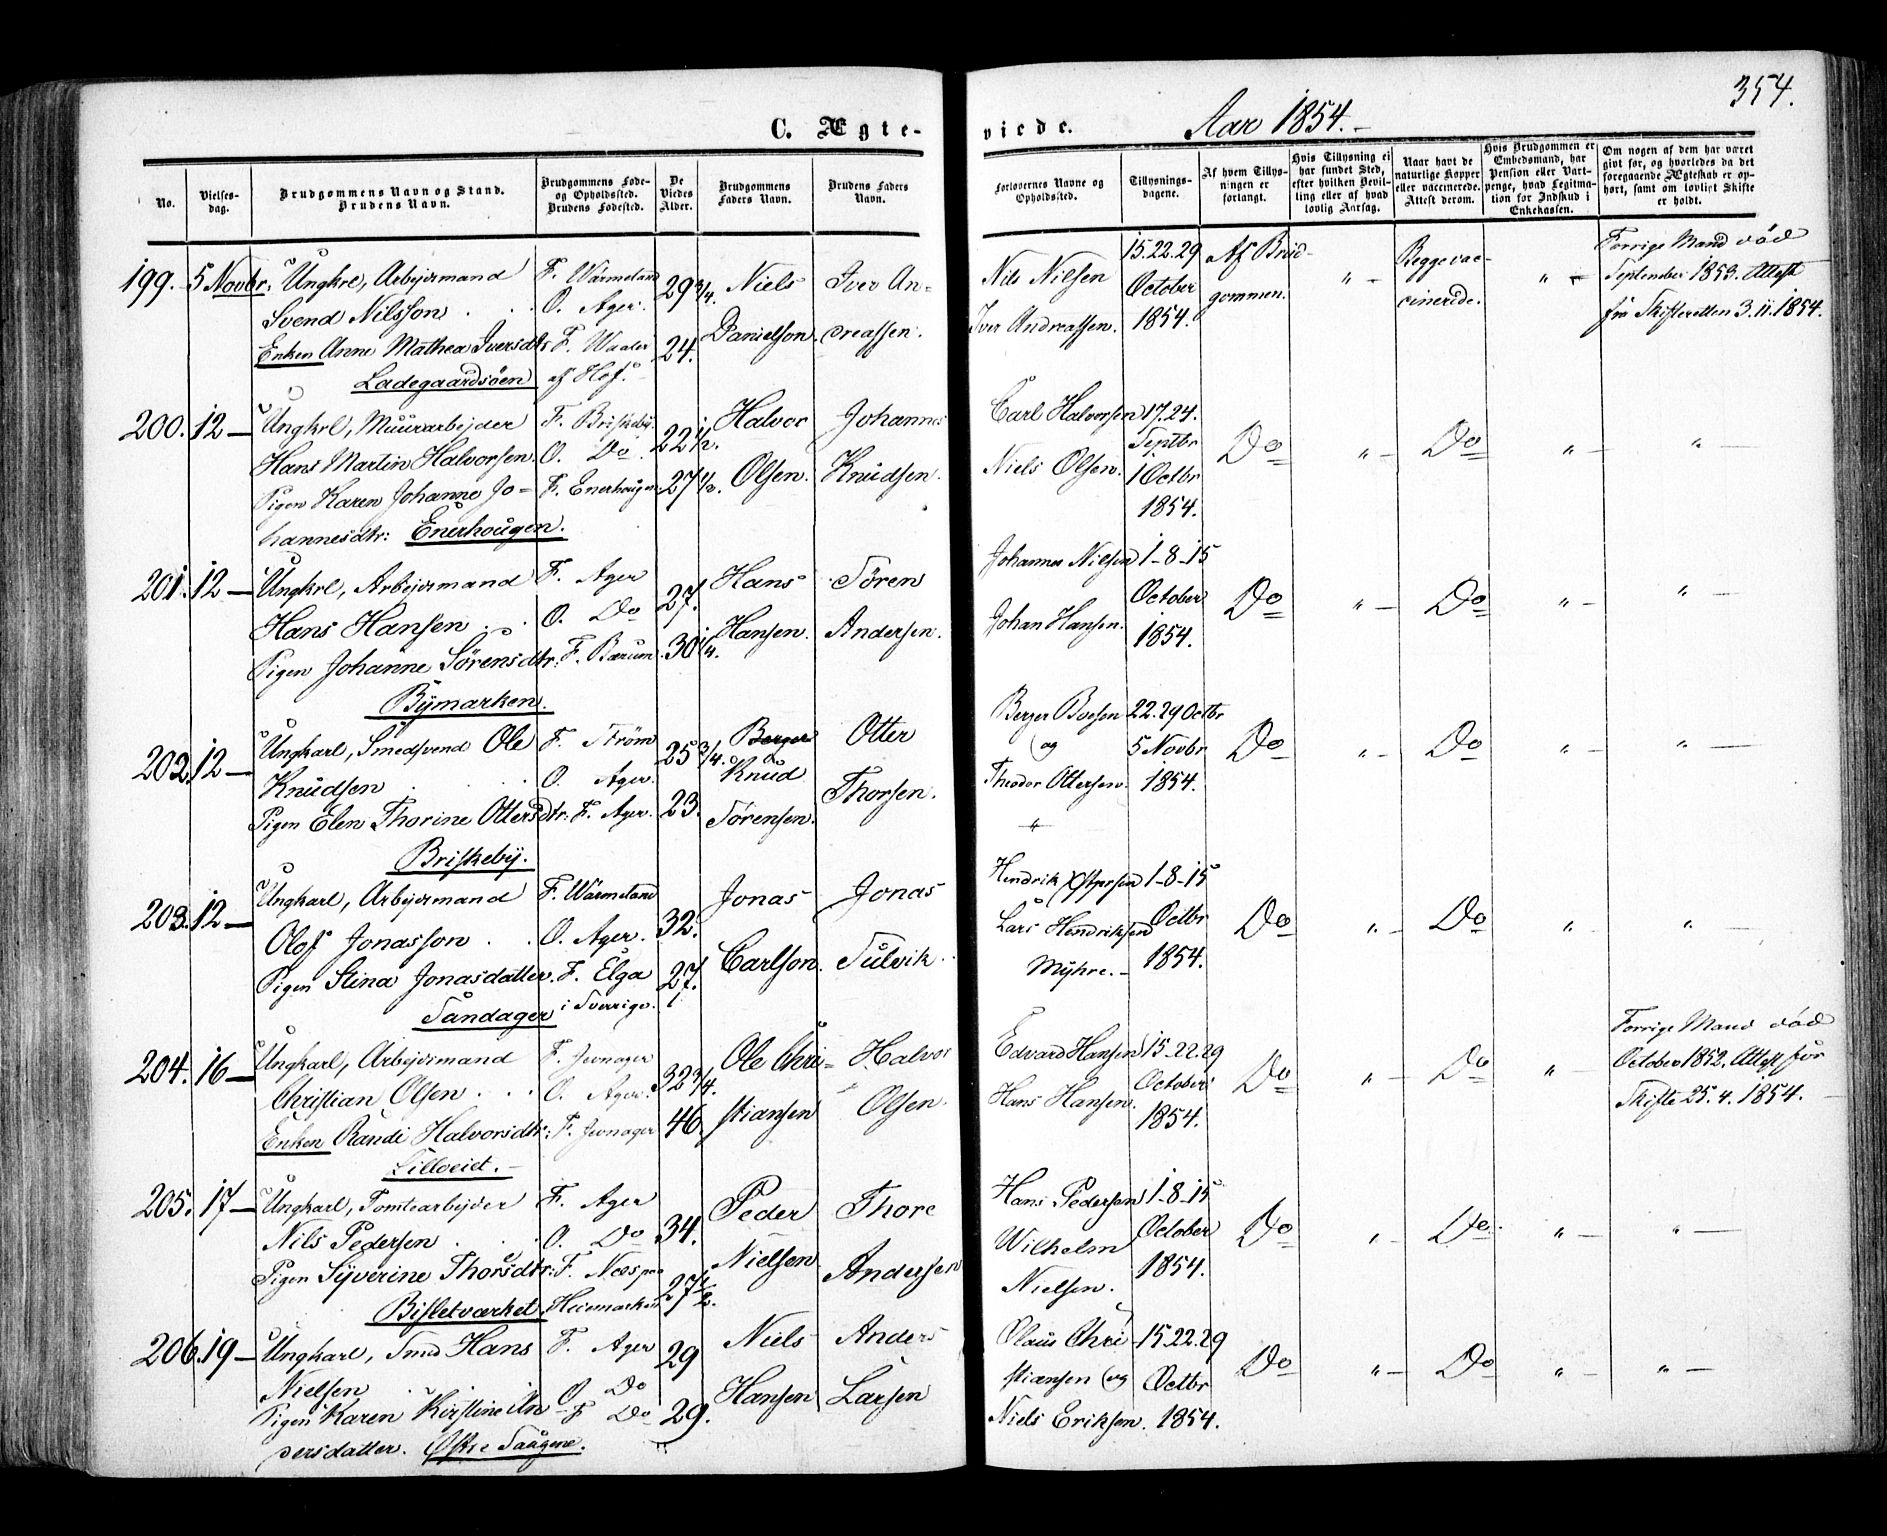 354.
C. Ægte- viede. Aar 1854.
No.
Vielses-dag.
Brudgommens Navn og Stand. Brudens Navn.
Brudgommens Føde- og Opholdssted. Brudens Fødested.
De Viedes Alder.
Brudgommens Faders Navn.
Brudens Faders Navn.
Forlovernes Navne og Opholdssted.
Tillysnings-dagene.
Af hvem Tillysningen er forlangt.
Hvis Tillysning ei har fundet Sted, efter hvilken Bevilling eller af hvad lovlig Aarsag.
Naar havt de naturlige Kopper eller vaccinerede. Attest derom.
Hvis Brudgommen er Embedsmand, har Pension eller Vartpenge, hvad Legitimation for Indskud i Enkekassen.
Om nogen af dem har været givt før, og hvorledes da det foregaaende Ægteskab er ophørt, samt om lovligt Skifte er holdt.
199. 5 Novbr. Ungkrl, Arbejdsmand
Svend Nilsson
Enken Anne Mathea Iversdtr
Ladegaardsöen
F. Wärmeland
O. Ager.
F. Waaler
af Hof.
29 3/4.
24.
Niels
Danielson.
Iver An=
dreassen.
Nils Nilsen
Iver Andreassen.
15.22.29
October
1854.
Af Brud-
gommen.
" -
Begge vac-
cinerede.
" -
Forrige Mand död
September 1853. Attest
fra Skifteretten 3.11.1854.
200. 12 - Ungkrl, Muurarbejder
Hans Martin Halvorsen.
Pigen Karen Johanne Jo=
hannesdtr: Enerhougen.
F. Briskeby.
O. Do.
F. Enerhougen
22 1/2.
27 1/2.
Halvor
Olsen.
Johannes
Knudsen.
Carl Halvorsen
Niels Olsen.
17.24.
Septbr
1 Octbr
1854.
Do
" -
Do
" -
" -
201. 12 - Ungkrl, Arbejdsmand
Hans Hansen
Pigen Johanne Sörensdtr:
Bymarken.
F. Ager
O. Do
F. Bærum
27.
30 1/4.
Hans
Hansen.
Sören
Andersen.
Johannes Nilsen
Johan Hansen.
1-8-15
October
1854.
Do
" -
Do
" -
" -
202. 12 - Ungkarl, Smedsvend Ole
Knudsen
Pigen Elen Thorine Ottersdtr:
Briskeby.
F. Ström
O. Ager.
F. Ager.
25 3/4.
23.
Berger
Knud
Sörensen.
Otter
Thorsen.
Berger Boesen
og
Theodor Ottersen.
"
22.29 Octbr
5 Novbr
1854.
Do
" -
Do
" -
" -
203. 12 - Ungkarl, Arbejdsmand
Olof Jonasson
Pigen Stina Jonasdatter.
Sandager
F. Wärmeland
O. Ager.
F. Elga
i Sverrige.
32.
27.
Jonas
Carlson.
Jonas
Sulvik.
Hendrik
Lars Hendriksen
Myhre.
1-8-15
Octbr
1854.
Do
" -
Do
"
" -
204. 16 - Ungkarl, Arbejdsmand
Christian Olsen
Enken Randi Halvorsdtr:
Lilloeiet.
F. Jevnager
O. Ager.
F. Jevnager
32 3/4.
46
Ole Chri=
stiansen
Halvor
Olsen.
Edvard Hansen
Hans Hansen.
15-22.29
October
1854.
Do
" -
Do
" -
Forrige Mand död
October 1852. Attest for
Skifte 25.4.1854.
205. 17 - Ungkarl, Tomtearbejder
Nils Pedersen
Pigen Syverine Thorsdtr:
Bisletværket.
F. Ager
O. Do
F. Næs paa
Hedemarken
34.
27 1/2.
Peder
Nielsen
Thore
Andersen
Hans Pedersen
Wilhelm
Nielsen.
1-8-15
October
1854.
Do
" -
Do.
" -
" -
206. 19 - Ungkarl, Smd Hans
Nielsen
Pigen Karen Kirstine An
dersdatter. Östre Saugene.
F. Ager
O. Do
F Do
29
29.
Niels
Hansen
Anders
Larsen
Olaus Chri
stiansen og
Niels Eriksen.
15.22.29
Octbr
1854.
Do
" -
Do
" -
" -